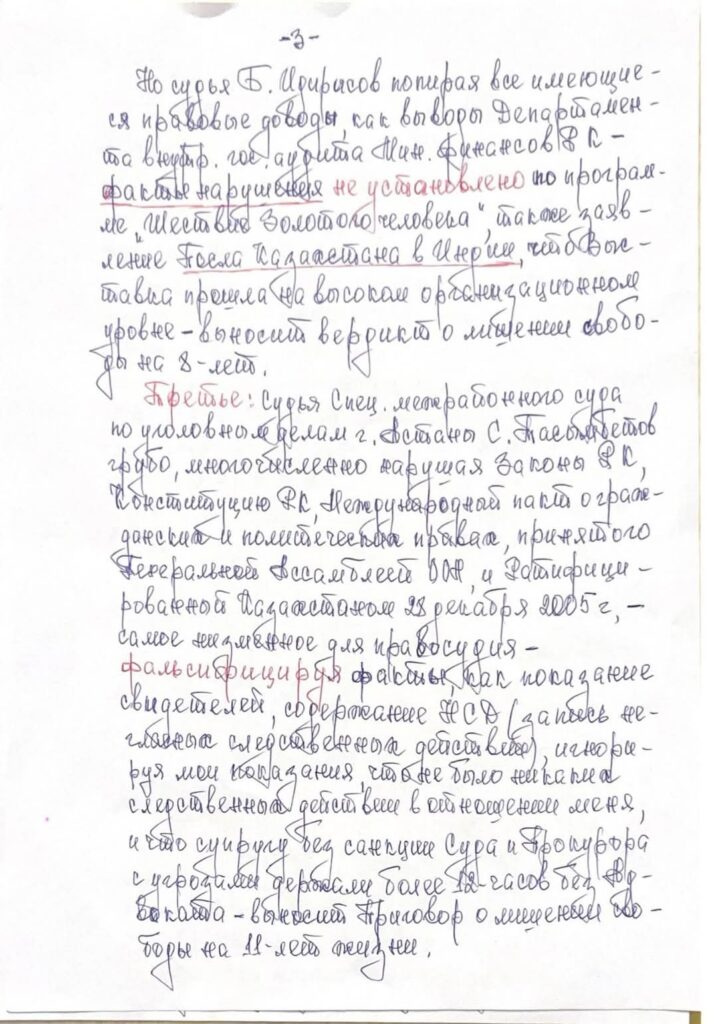 -3-
Но судья Б. Идирисов попирая все имеющие-
ся правовые доводы, как выводы Департамен-
та внутр. гос. аудита Мин. финансов РК -
факты нарушения не установлено по програм-
ме „Шествие Золотого человека", также заяв-
ление Посла Казахстана в Индии, что Выс-
тавка прошла на высоком организационном
уровне - выносит вердикт о лишении свобо-
ды на 8-лет.
Третье: Судья Спец. межрайонного суда
по уголовным делам г. Астаны С. Тасымбетов
грубо, многочисленно нарушая Законы РК,
Конституцию РК, Международный пакт о граж-
данских и политических правах, принятого
Генеральной Ассамблеей ООН, и Ратифици-
рованный Казахстаном 28 декабря 2005 г, -
самое низменное для правосудия -
фальсифицируя факты, как показание
свидетелей, содержание НСД (запись не-
гласных следственных действий), игнори-
руя мои показания, что не было никаких
следственных действий в отношении меня,
и что супругу без санкции Суда и Прокурора
с угрозами держали более 12-часов без Ад-
воката - выносит Приговор о лишении сво-
боды на 11-лет жизни.